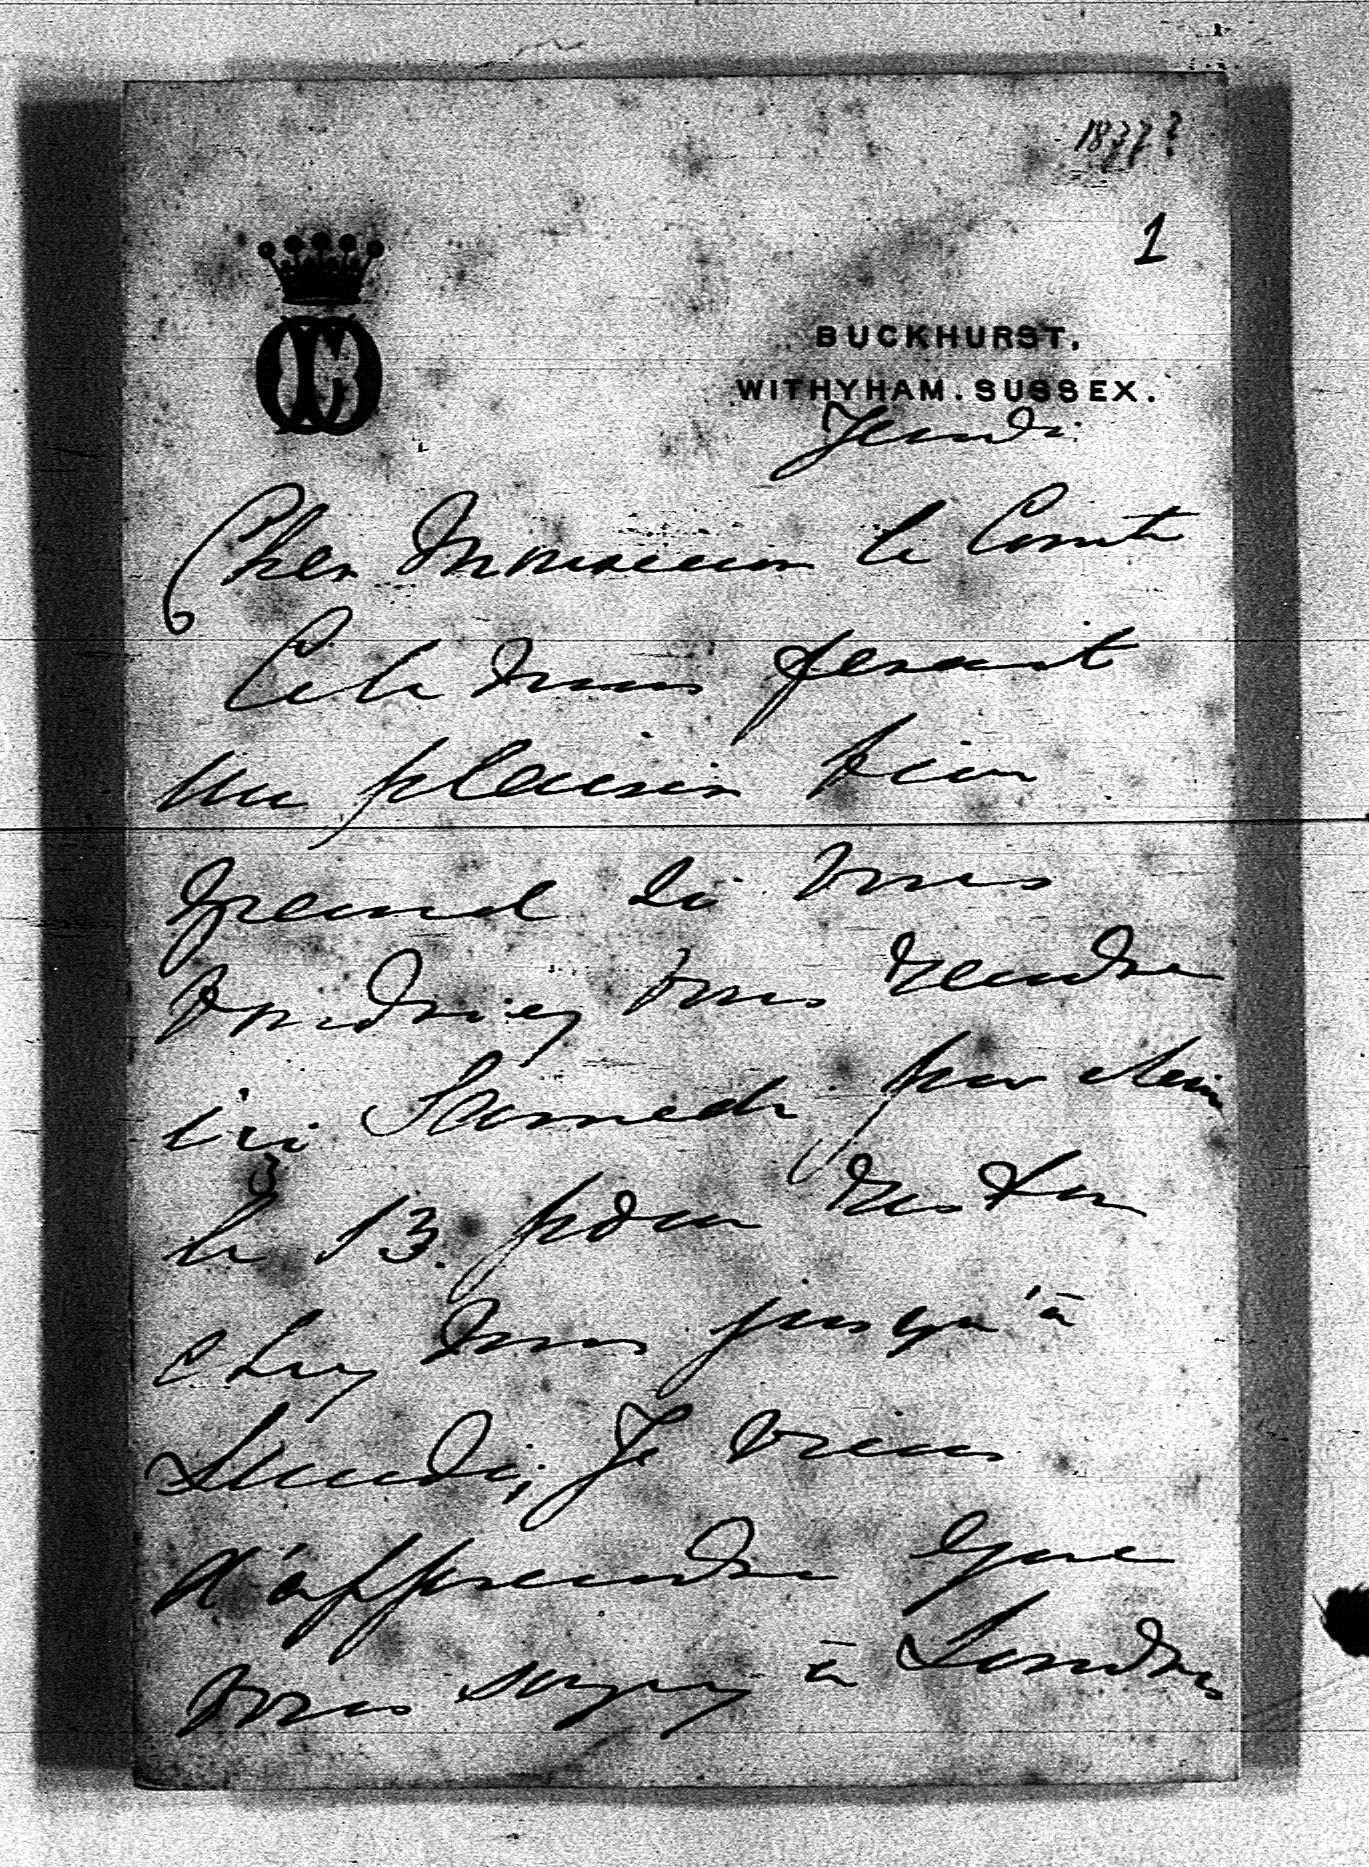 1877?
1
BUCKHURST,
WITHYHAM. SUSSEX.
Jeudi
Cher Monsieur le Comte
Cela nous ferait
un plaisir bien
grand si vous
voudriez vous rendre
ici Samedi prochain
le 13. pour rester
chez nous jusqu'à
Lundi, Je viens
d'apprendre que
vous soyez à Londres